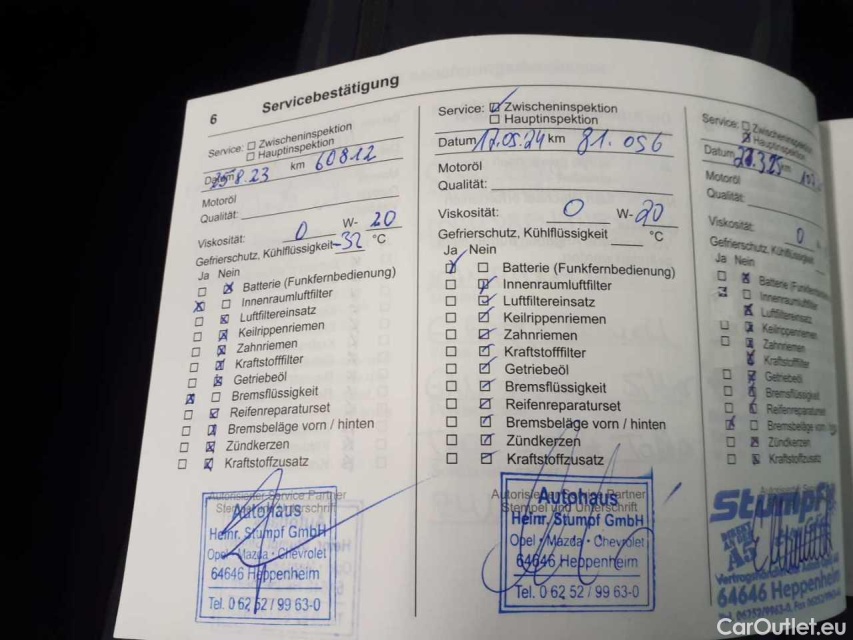 6 Servicebestätigung
Service: Zwischeninspektion
Hauptinspektion
Datum 25.8.23 km 60812
Motoröl
Qualität:
Viskosität: 0 W- 20
Gefrierschutz, Kühlflüssigkeit -32 °C
Ja Nein
Batterie (Funkfernbedienung)
Innenraumluftfilter
Luftfiltereinsatz
Keilrippenriemen
Zahnriemen
Kraftstofffilter
Getriebeöl
Bremsflüssigkeit
Reifenreparaturset
Bremsbeläge vorn / hinten
Zündkerzen
Kraftstoffzusatz
Autorisierter Service Partner
Stempel und Unterschrift
Autohaus
Heinr. Stumpf GmbH
Opel • Mazda • Chevrolet
64646 Heppenheim
Tel. 0 62 52 / 99 63-0
Service: Zwischeninspektion
Hauptinspektion
Datum 17.05.24 km 81.056
Motoröl
Qualität:
Viskosität: 0 W- 20
Gefrierschutz, Kühlflüssigkeit °C
Ja Nein
Batterie (Funkfernbedienung)
Innenraumluftfilter
Luftfiltereinsatz
Keilrippenriemen
Zahnriemen
Kraftstofffilter
Getriebeöl
Bremsflüssigkeit
Reifenreparaturset
Bremsbeläge vorn / hinten
Zündkerzen
Kraftstoffzusatz
Autorisierter Service Partner
Stempel und Unterschrift
Autohaus
Heinr. Stumpf GmbH
Opel • Mazda • Chevrolet
64646 Heppenheim
Tel. 0 62 52 / 99 63-0
Service: Zwischeninspektion
Hauptinspektion
Datum
Motoröl
Qualität:
Viskosität: 0
Gefrierschutz, Kühlflüssigkeit
Ja Nein
Batterie
Innenraumluftfilter
Luftfiltereinsatz
Keilrippenriemen
Zahnriemen
Kraftstofffilter
Getriebeöl
Bremsflüssigkeit
Reifenreparaturset
Bremsbeläge
Zündkerzen
Kraftstoffzusatz
Stumpf
64646 Heppenheim
CarOutlet.eu